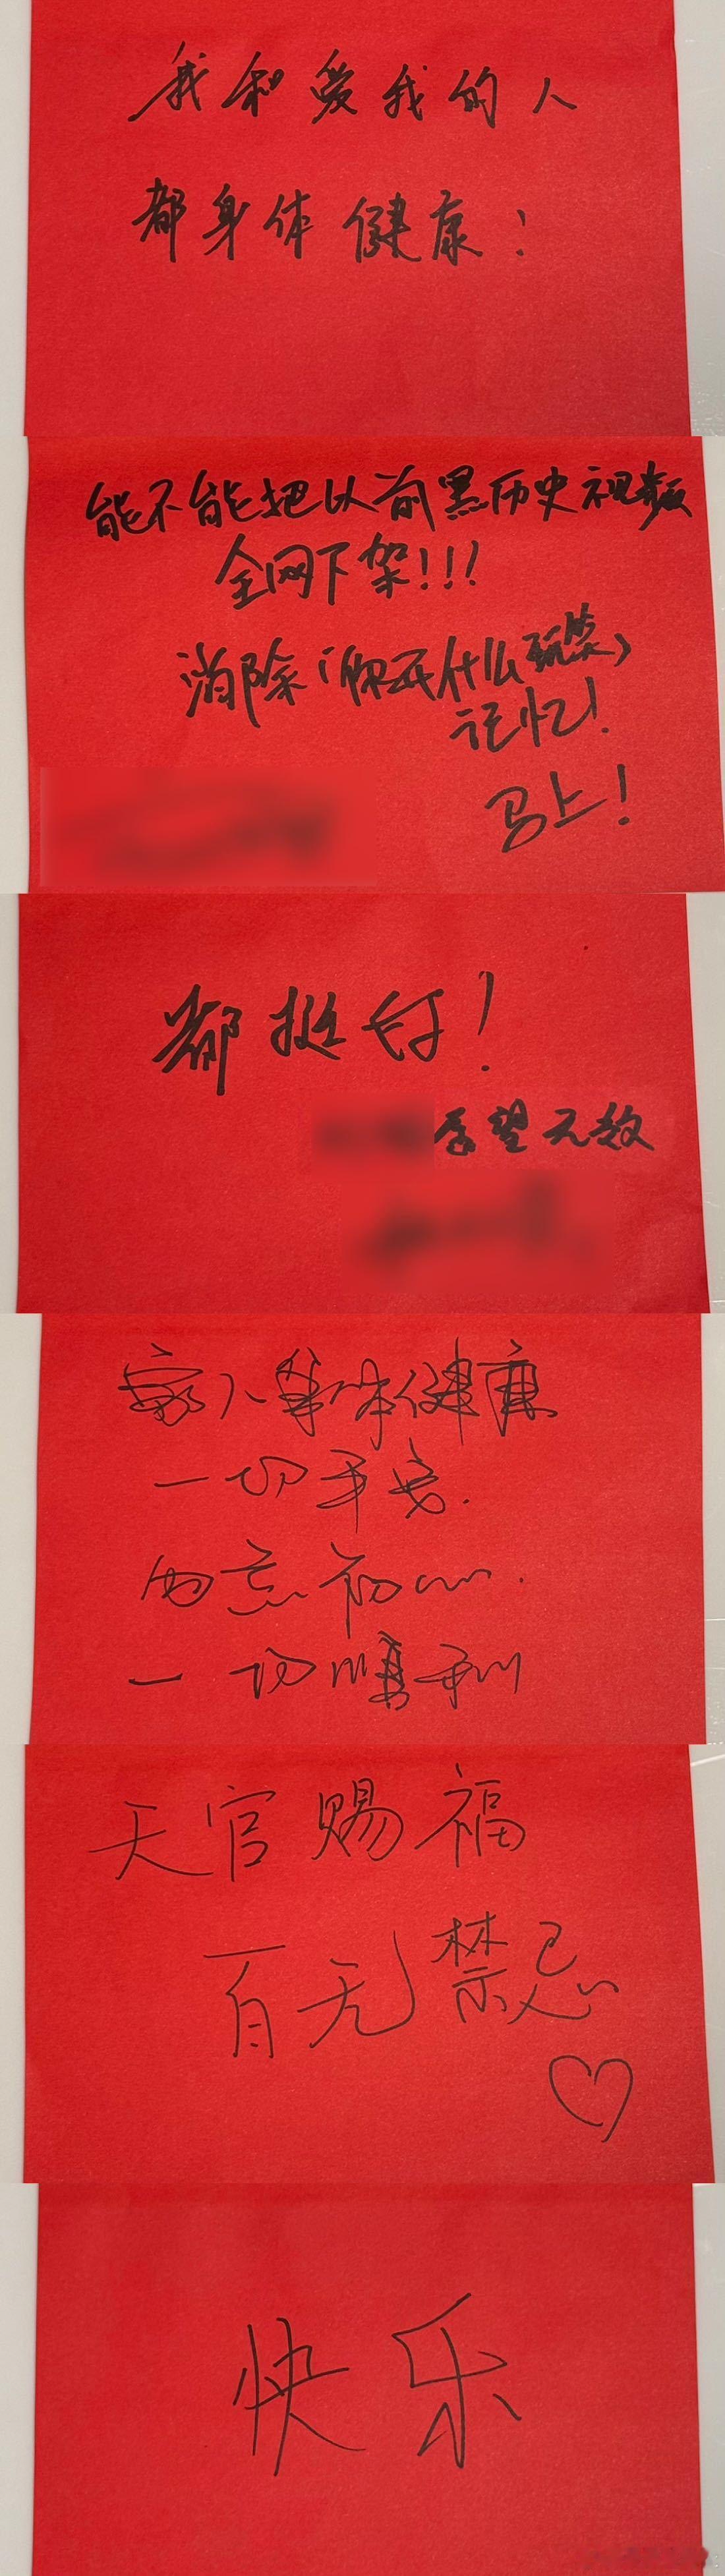 我和爱我的人
都身体健康！
能不能把以前黑历史视频
全网下架!!!
消除「你开什么玩笑」
记忆!
马上!
都挺好!
无数
家人身体健康
一切平安.
勿忘初心.
一切顺利
天官赐福
百无禁忌
快乐